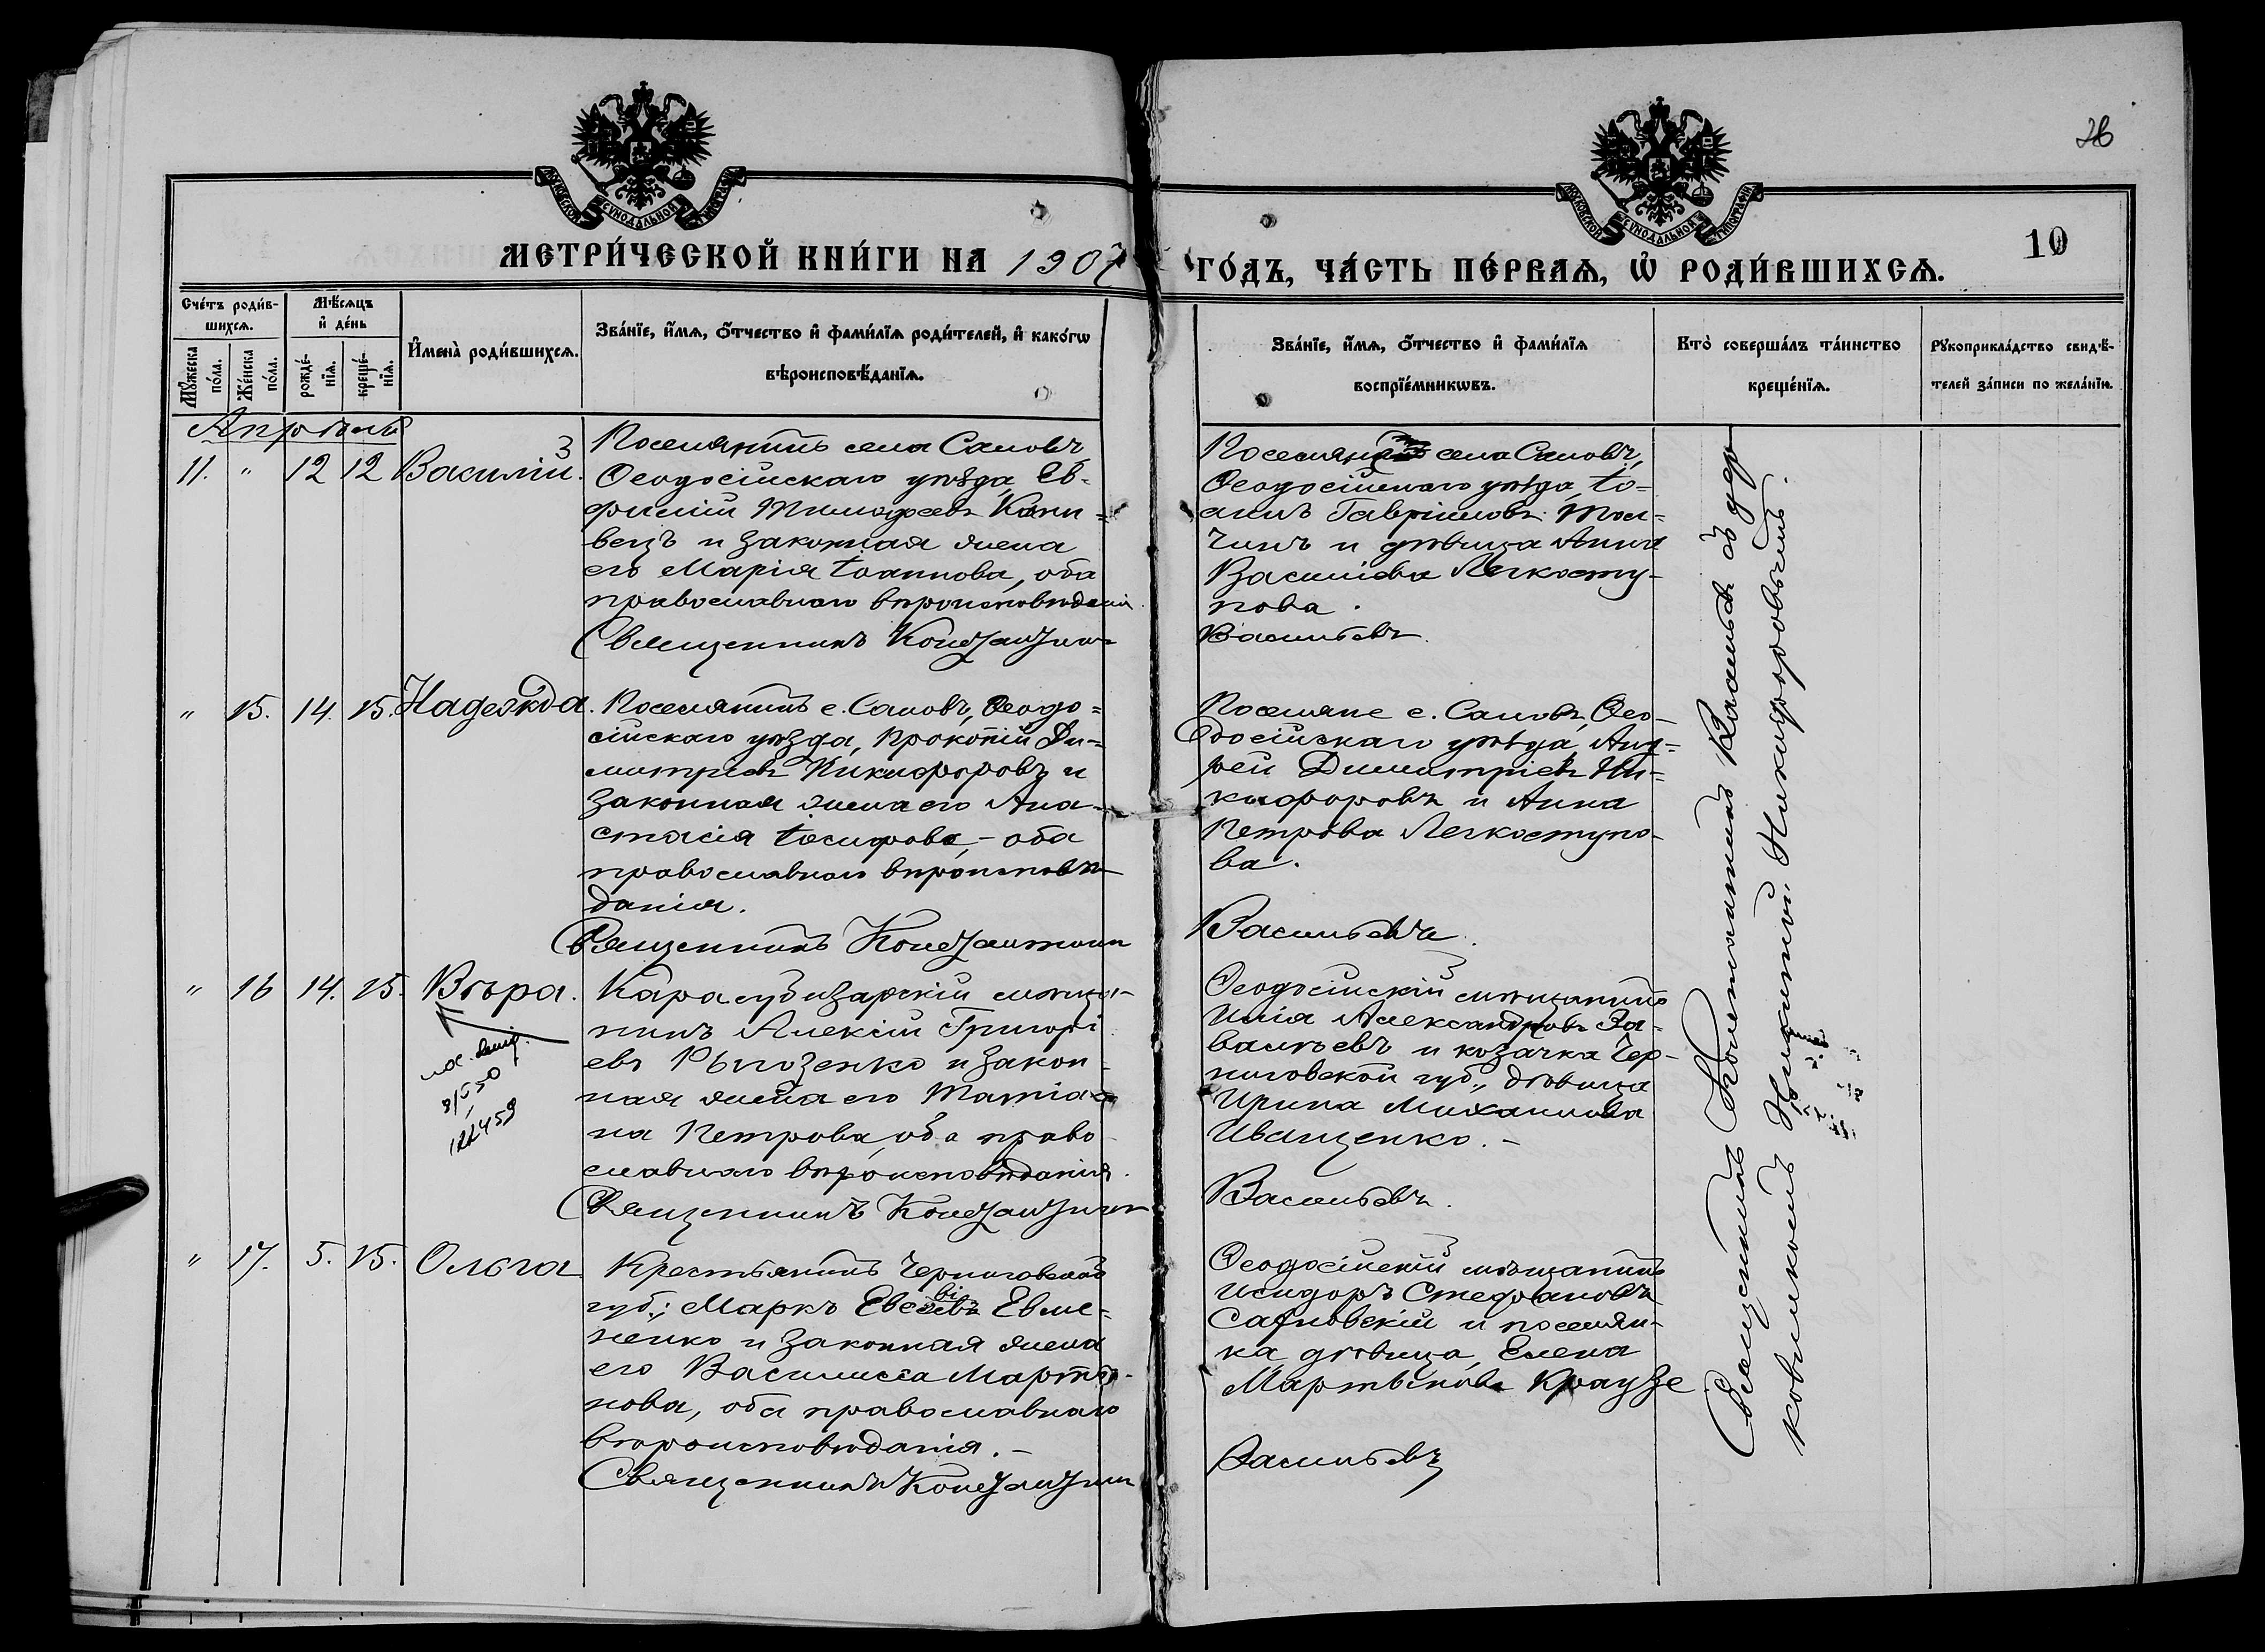 26
МОСКОВСКОЙ СѴНОДАЛЬНОЙ ТИПОГРАФІИ
МОСКОВСКОЙ СѴНОДАЛЬНОЙ ТИПОГРАФІИ
10
МЕТРИ́ЧЕСКОЙ КНИ́ГИ НА 1907
ГО́ДЪ, ЧА́СТЬ ПЕ́РВАѦ, Ѡ РОДИ́ВШИХСѦ.
Сче́тъ роди́в-
шихсѧ.
Мꙋ́жеска
по́ла.
Же́нска
по́ла.
Мѣ́сѧцъ
и҆ де́нь
рожде́-
нїѧ.
креще́-
нїѧ.
И҆мена̀ роди́вшихсѧ.
Зва́нїе, и҆́мѧ, ѻ҆́тчество и҆ фами́лїѧ роди́телей, и҆ како́гѡ
вѣроисповѣ́данїѧ.
Зва́нїе, и҆́мѧ, ѻ҆́тчество и҆ фами́лїѧ
воспрїе́мникѡвъ.
Кто̀ соверша́лъ та́инство
креще́нїѧ.
Рꙋкоприкла́дство свидѣ́-
телей за́писи по жела́нїю.
Апрѣль
11. " 12 12 Василій.
Поселянинъ села Саловъ,
Ѳеодосійскаго уѣзда, Ев-
фимій Тимофеевъ Капи-
вецъ и законная жена
его Марія Іоаннова, оба
православнаго вѣроисповѣданія.
Священникъ Константинъ
села Саловъ,
Ѳеодосійскаго уѣзда, Іо-
аннъ Гавріиловъ Тол-
чинъ и дѣвица Анна
Васильева Легкосту-
пова.
Васильевъ
" 15. 14. 15. Надежда.
Поселянинъ с. Саловъ, Ѳеодо-
сійскаго уѣзда, Прокопій Ди-
митріевъ Никифоровъ и
законная жена его Ана-
стасія Іосифова, - оба
православнаго вѣроисповѣ-
данія.
Священникъ Константинъ
Поселяне с. Саловъ, Ѳео-
досійскаго уѣзда, Анд-
рей Димитріевъ Ни-
кифоровъ и Анна
Петрова Легкоступо-
ва.
Васильевъ.
" 16 14. 15. Вѣра.
8/550
122459
Карасубазарскій мѣща-
нинъ Алексій Григорі-
евъ Рыгозенко и закон-
ная жена его Татіа-
на Петрова, оба право-
славнаго вѣроисповѣданія.
Священникъ Константинъ
Ѳеодосійскій мѣщанинъ
Илія Александровъ За-
вальевъ и козачка Чер-
ниговской губ., дѣвица
Ирина Михаилова
Иващенко. -
Васильевъ.
" 17. 5. 15. Ольга
Крестьянинъ Черниговской
губ.; Маркъ Евсевіевъ Евме-
ненко и законная жена
его Василисса Марты-
нова, оба православнаго
вѣроисповѣданія. -
Священникъ Константинъ
Ѳеодосійскій мѣщанинъ
Исидоръ Стефановъ
Садовскій и поселян-
ка дѣвица, Елена
Мартынова Краузе
Васильевъ
Священникъ Константинъ Васильевъ съ
Никифоровымъ.